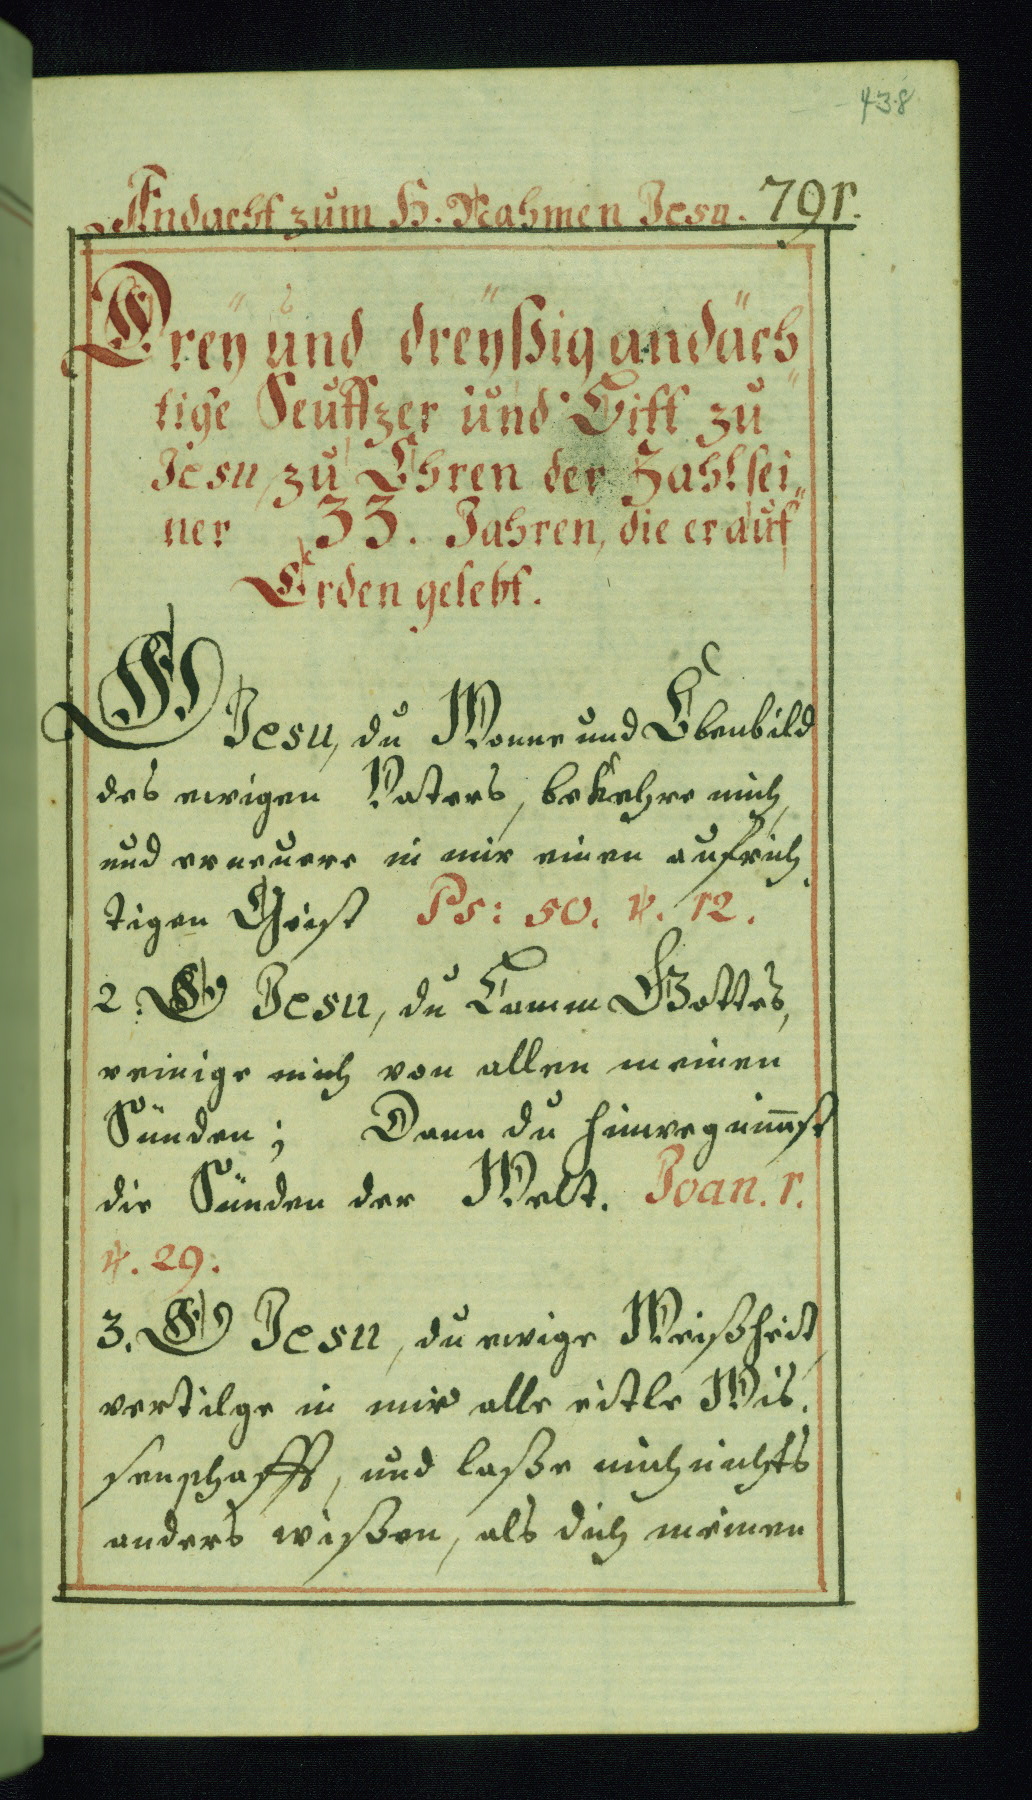 438
Andacht zum H. Nahmen Jesu. 791.
Dreÿ und dreÿßig andäch
tige Seuffzer und Bitt zu
Jesu, zu Ehren der Zahl sei„
ner 33. Jahren, die er auf
Erden gelebt.
O Jesu, du Wonne und Ebenbild
des ewigen Vaters, bekehre mich,
und erneuere in mir einen aufrich
tigen Geist Ps: 50. ℣. 12.
2. O Jesu, du Lamm Gottes,
reinige mich von allen meinen
Sünden; Dann du hinwegnim̅st
die Sünden der Welt. Joan. 1.
℣. 29.
3. O Jesu, du ewige Weißheit,
vertilge in mir alle eitle Wis.
senschafft, und laße mich nichts
anders wißen, als dich meinen